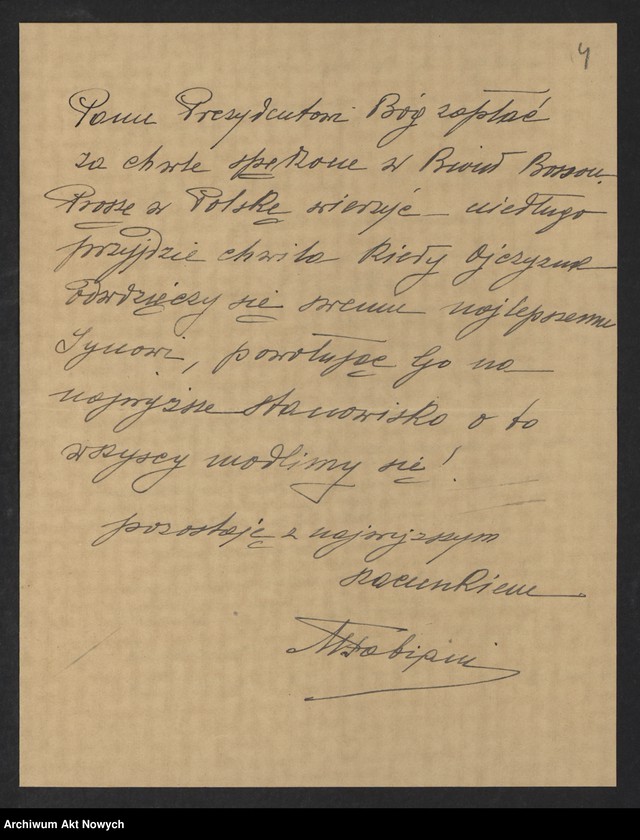 4
Panu Prezydentowi Bóg zapłać
za chwle spędzone w Riond Bosson.
Proszę w Polskę wierzyć – niedługo
przyjdzie chwila kiedy Ojczyzna
odwdzięczy się swemu najlepszemu
Synowi, powołując Go na
najwyższe stanowisko o to
wszyscy modlimy się!
pozostaję z najwyższym
szacunkiem
Archiwum Akt Nowych